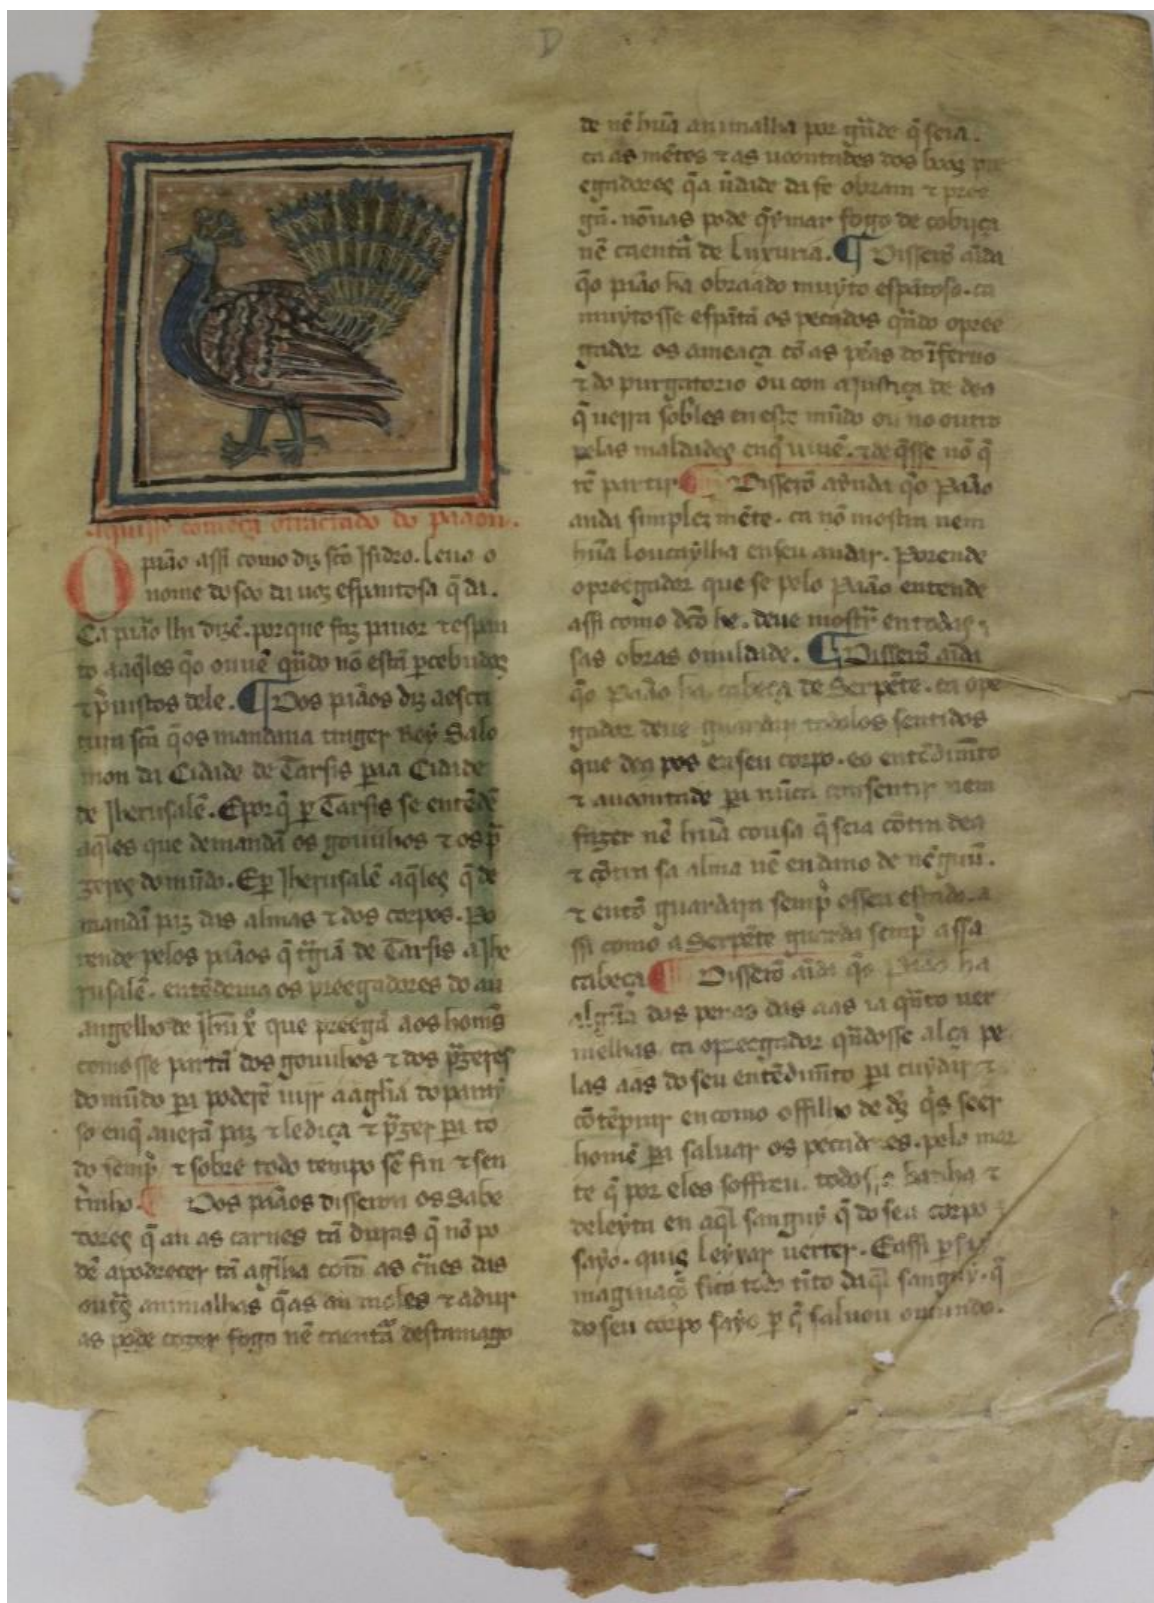 D
aquisse começa o tractado do paaom.
O paão assi como diz scõ Jsidro. leuo o
nome do soo da uoz espantosa q̃ dá.
Ca paão lhi dizẽ. porque faz pauor ⁊ espan
to aaq̃les q̃o ouuẽ qñdo nõ estã ꝑcebudos
⁊ ꝓuistos dele. ¶ Dos paãos diz aescri
tura scã q̃os mandaua trager Rey Salo
mon da Cidade de Tarsis ꝑa a Cidade
de Jherusalẽ. E porq̃ ꝑ Tarsis se entẽdẽ
aq̃les que demandã os gouuhos ⁊ os p̃
zeres do mũdo. E ꝑ Jherusalẽ aq̃les q̃ de
mandã paz das almas ⁊ dos corpos. Po
rende pelos paãos q̃ tragiã de Tarsis a Jhe
rusalẽ. entẽdemos os preegadores do au
angelho de Jhũ xº que preegã aos homẽs
comosse partã dos gouuhos ⁊ dos p̃zeres
do mũdo ꝑa poderẽ uijr aa gl̃ia do paray
so enq̃ auerã paz ⁊ lediça ⁊ p̃zer ꝑa to
do semp̃ ⁊ sobre todo tempo sẽ fin ⁊ sen
t̃minho. ¶ Dos paãos disseron os Sabe
dores q̃ an as carnes tã duras q̃ nõ po
dẽ apodrecer tã agĩha comȯ as c̃nes das
out̃s animalhas q̃as an moles ⁊ adur
as pode cozer fogo nẽ caentũra destamago
de nẽ hũa animalha por gñde q̃ seia.
ca as mẽtes ⁊ as uoontades dos boos pre
egadores q̃a ũdade da fe obram ⁊ pree
gã. nõnas pode q̃ymar fogo de cobijça
nẽ caentũra de luxuria. ¶ Disserõ aĩda
q̃o paão ha obraado muyto espãtoso. ca
muytosse espãtã os pecadores qñdo opree
gador os ameaça cõ as pẽas do ĩferno
⁊ do purgatorio ou con a Justiça de deos
q̃ uerra sobreles en este mũdo ou no outro
pelas maldades enq̃ uiuẽ. ⁊ de q̃sse nõ q̃
rẽ partir ¶ Disserõ aynda q̃o Paão
anda simplez mẽte. ca nõ mostra nem
hũa louçaylha en seu andar. Porende
opreegador que se pelo Paão entende
assi como dcõ he. deue mostr̃ en todas
sas obras omildade. ¶ Disserõ aĩda
q̃o Paão ha cabeça de Serpẽte. ca opre
gador deue guardar todolos sentidos
que deos pos en seu corpo. eo entẽdimẽto
⁊ auoontade ꝑa nũca consentir nem
fazer nẽ hũa cousa q̃ seia cõtra deos
⁊ cõtra sa alma nẽ en dano de nẽguũ.
⁊ entõ guardara semp̃ osseu estado. a
ssi como a Serpẽte guarda semp̃ a ssa
cabeça ¶ Disserõ aĩda q̃o Paão ha
algũas das penas das aas ia qñto uer
melhas. ca opreegador qñdosse alça pe
las aas do seu entẽdimẽto ꝑa cuydar ⁊
cõtẽprar en como o ffilho de ds̃ q̃s seer
homẽ ꝑa saluar os pecadores. pela mor
te q̃ por eles soffreu. todo se banha ⁊
deleyta en aq̃l sanguy q̃ do seu corpo
sayo. quis leyxar uerter. E assi ꝑ sa y
maginaçõ fica todo tĩto daq̃l sanguy. q̃
do seu corpo sayo ꝑ q̃ saluou o mundo.